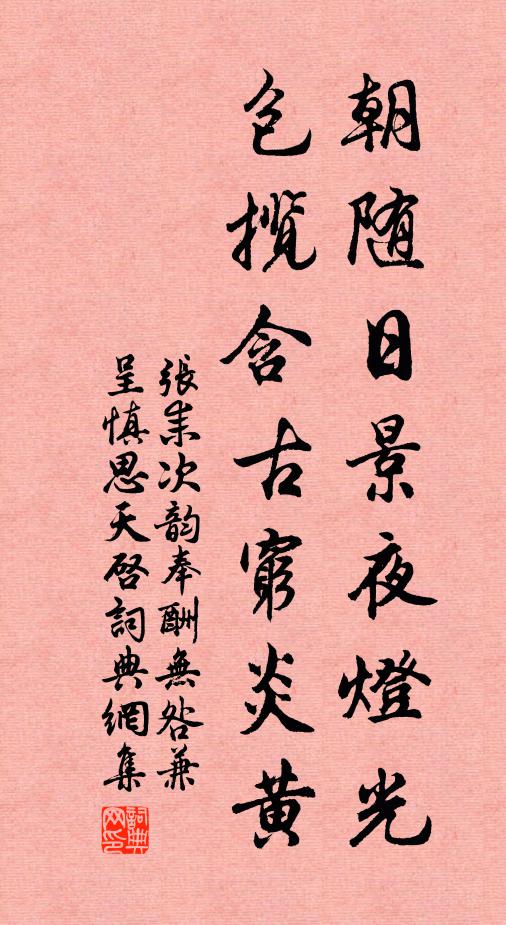 朝随日景夜燈光
包攬含古窮炎黄
張耒次韵奉酬無咎兼
呈慎思天啓詞典網集
詞典网印